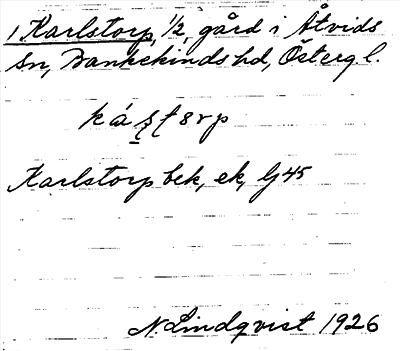 1 Karlstorp, 1/2, gård i Åtvids
sn, Bankekinds hd, Österg l.
Karlstorp bek, ek, lj 45
N. Lindqvist 1926